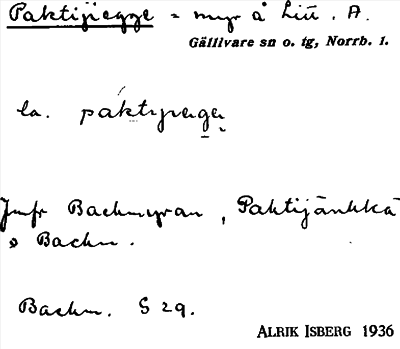 Paktijiegge = myr å Lill. A.
Gällivare sn o. tg, Norrb. l.
la. paktijiegge
Jmfr Backmyran, Paktijänkkä
o Backn.
Backn. S 29.
ALRIK ISBERG 1936